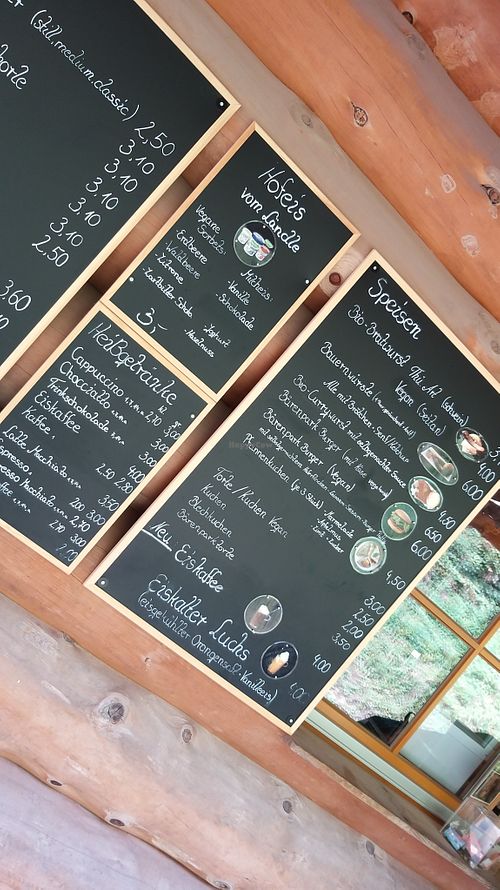 er (still, medium, classic) 2,50
3,10
3,10
3,10
3,10
3,10
2,50
3,60
Hofeis
vom Ländle
Vegane
Sorbets:
Erdbeere
Waldbeere
Zitrone
Zartbitter Schoko
3,-
Milcheis:
Vanille
Schokolade
Joghurt
Haselnuss
Heißgetränke
Cappuccino 2,70 3,00
Chocciatto 3,00
Trinkschokolade 3,00
Eiskaffee 4,00
Kaffee 2,50 2,80
Latte Macchiato 3,50
Espresso 2,00 3,00
Espresso Macchiato 2,70 3,00
Speisen
Bio-Bratwurst Thü. Art (Schwein) 4,50
Vegan (Seitan) 6,00
Bauernwürste
Alle mit Brötchen, Senf/Ketchup
Bio Currywurst mit selbstgemachter Sauce 6,50
Bärenpark Burger (mit Rind)
Bärenpark Burger (vegan) 6,00
Sonnenkuchen (je 3 Stück) 4,50
Marmelade
Apfelmus
Zimt-Zucker
Torte/Kuchen Vegan 3,00
Kuchen 2,50
Blechkuchen 2,00
Bärenparktorte 3,50
Neu: Eiskaffee 4,00
Eiskalter Luchs 4,00
(eisgekühlter Orangensaft + Vanilleeis)